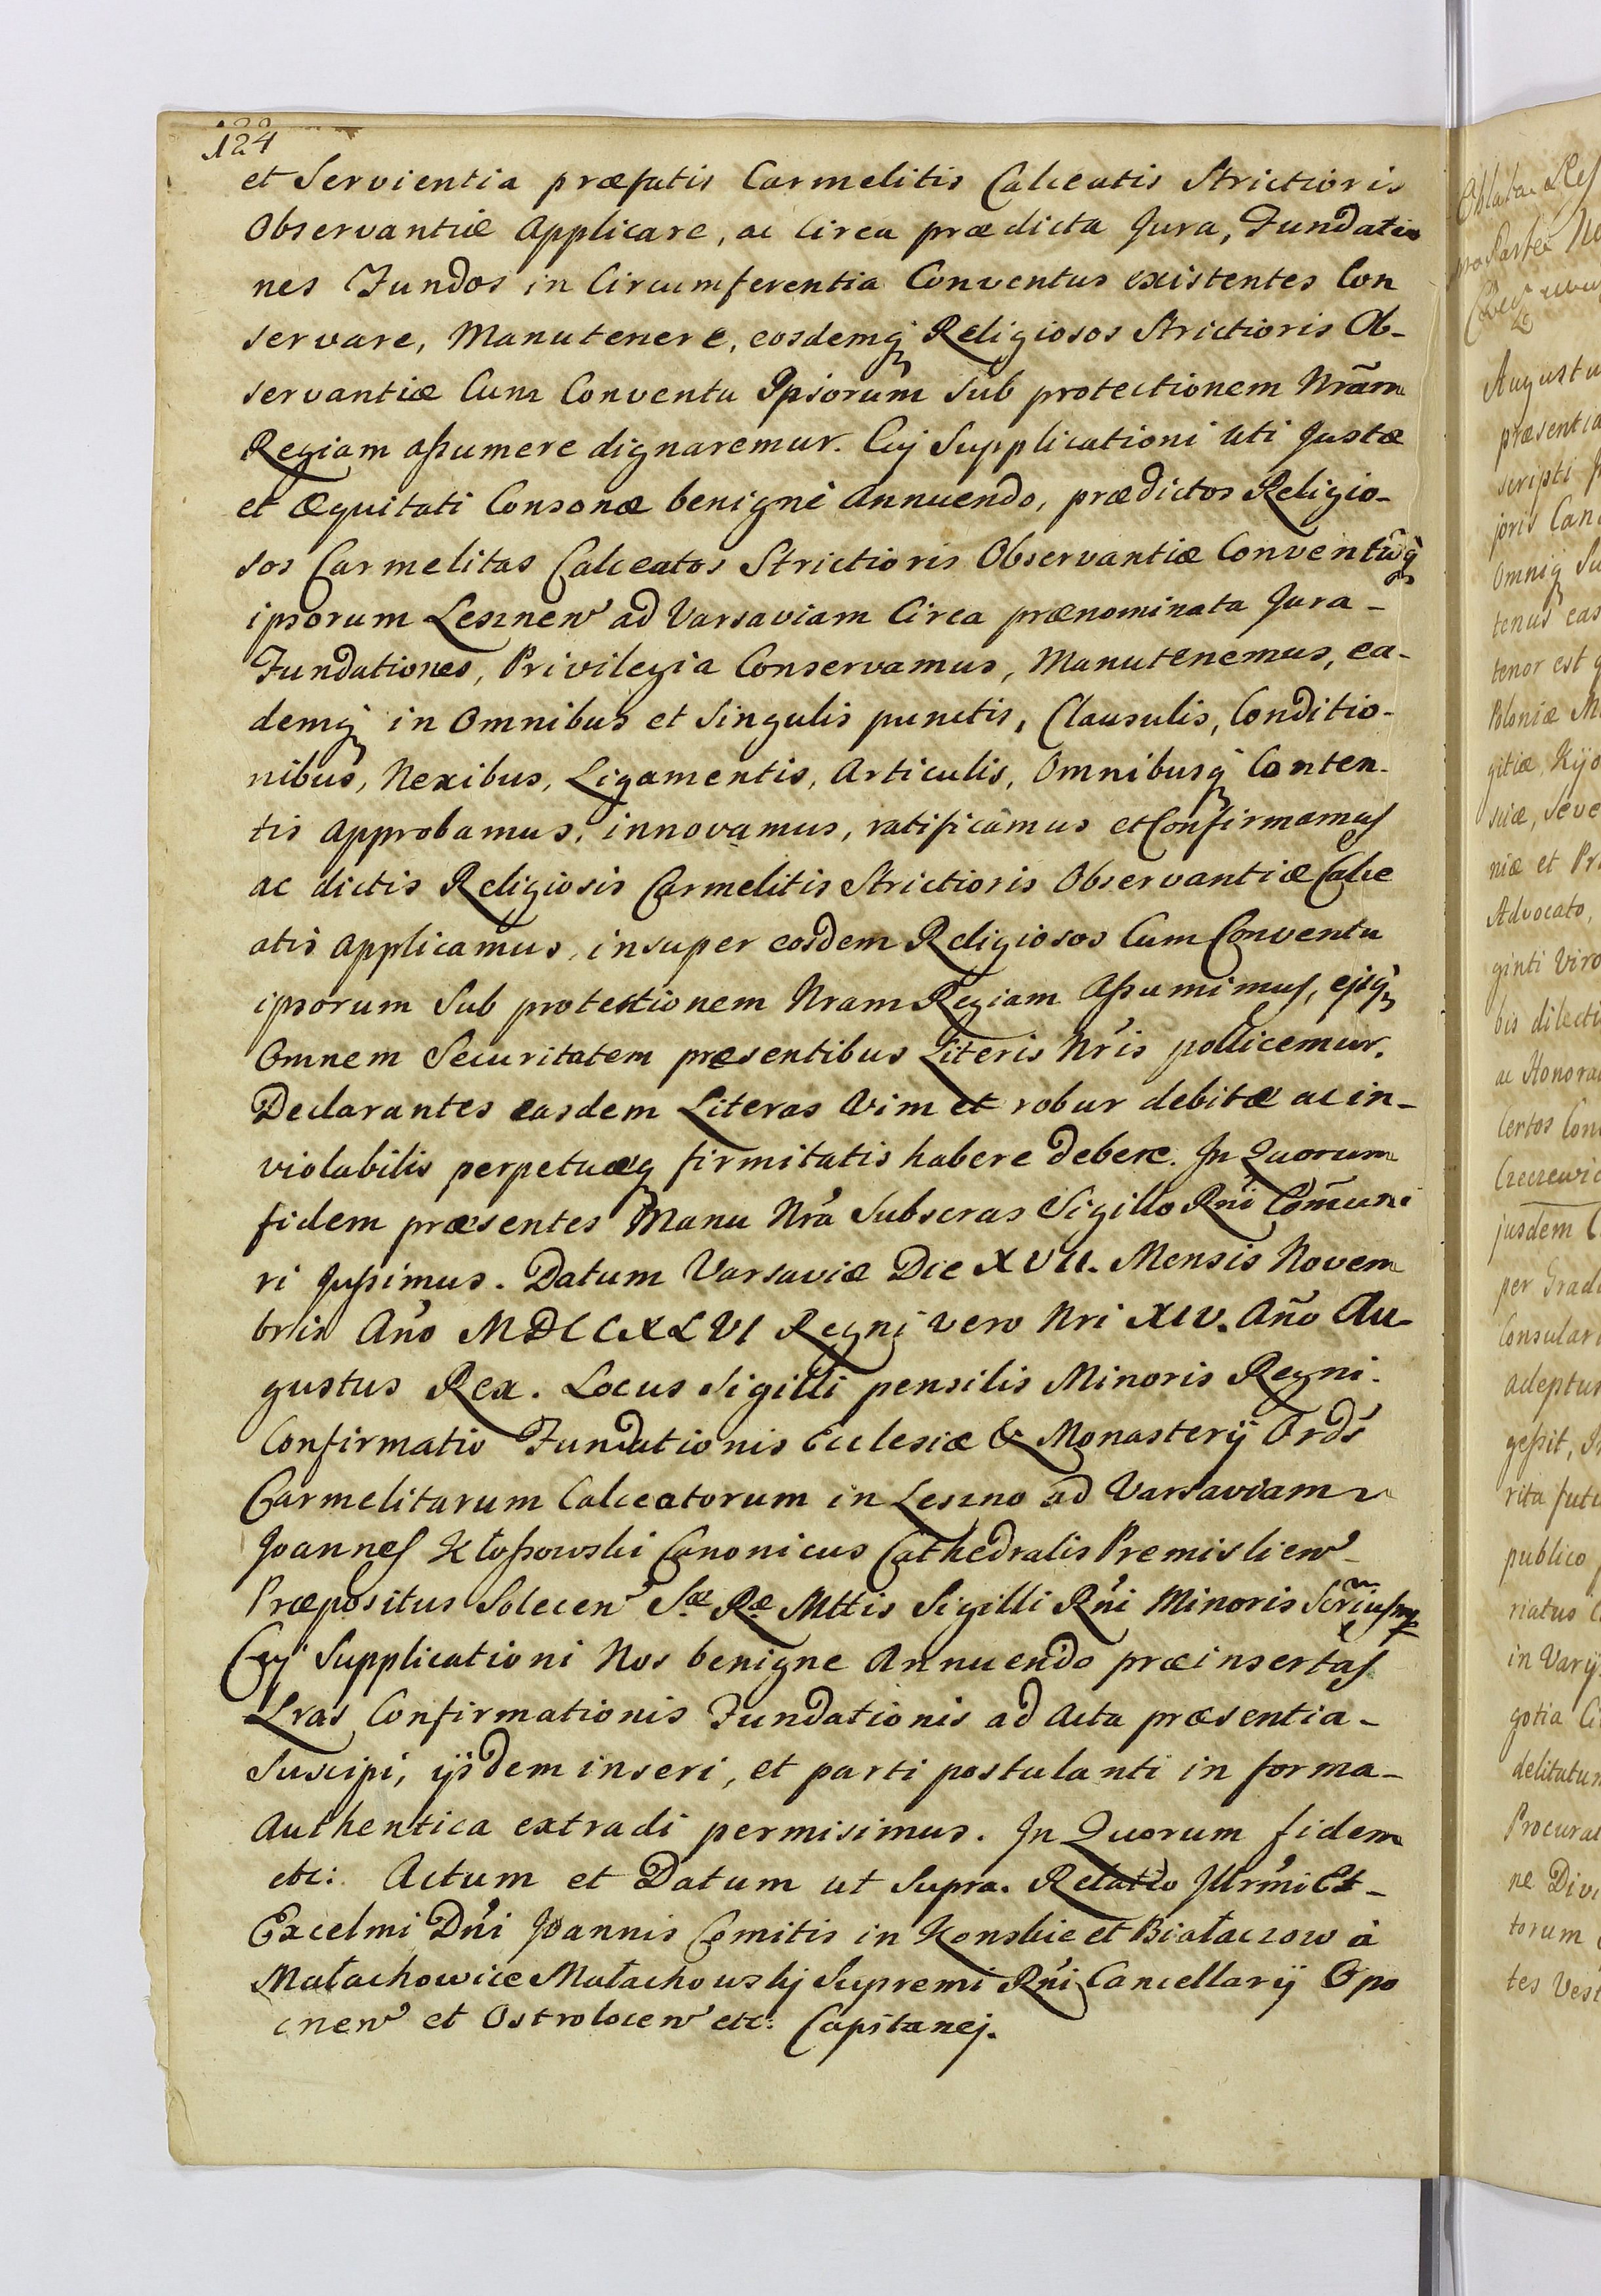 124
et Servientia præfatis Carmelitis Calceatis Strictioris
Observantiæ Applicare, ac Circa prædicta Jura, Fundatio
nes Fundos in Circumferentia Conventus existentes Con
servare, Manutenere, eosdemq Religiosos Strictioris Ob-
servantiæ Cum Conventu Ipsorum sub protectionem Nrãm
Regiam assumere dignaremur. Cuj Supplicationi uti Justæ
et Æquitati Consonæ benignè Annuendo, prædictos Religio-
sos Carmelitas Calceatos Strictioris Observantiæ Conventũq
ipsorum Lesznen ad Varsaviam Circa prænominata Jura -
Fundationes, Privilegia Conservamus, Manutenemus, ea-
demq in Omnibus et Singulis punctis, Clausulis, Conditio-
nibus, Nexibus, Ligamentis, Articulis, Omnibusq Conten-
tis Approbamus, innovamus, ratificamus et Confirmamus
ac dictis Religiosis Carmelitis Strictioris Observantiæ Calce
atis Applicamus, insuper eosdem Religiosos Cum Conventu
ipsorum Sub protectionem Nram Regiam Assumimus, ejsq
Omnem Securitatem præsentibus Literis Nris pollicemur.
Declarantes easdem Literas Vim et robur debitæ ac in-
violabilis perpetuæq firmitatis habere debere. In Quorum
fidem præsentes Manu Nrã Subscras Sigillo Rni Cõmuni
ri Jussimus. Datum Varsaviæ Die XVII. Mensis Novem
bris Año MDCCXLVI Regnj vero Nri XIV. Año Au-
gustus Rex. Locus Sigilli pensilis Minoris Regni.
Confirmatio Fundationis Ecclesiæ & Monasterÿ Ords
Carmelitarum Calceatorum in Leszno ad Varsaviam
Joannes Kłossowski Canonicus Cathedralis Premislien
Præpositus Solecen Sæ Ræ Mttis Sigilli Rni Minoris Scriusmp
Cuj Supplicationi Nos benigne Annuendo præinsertas
Lras Confirmationis Fundationis ad Acta præsentia -
Suscipi, ijsdem inseri, et parti postulanti in forma -
Authentica extradi permisimus. In Quorum fidem
etc: Actum et Datum ut Supra. Relatio Jllrmi Et -
Excelmi Dni Joannis Comitis in Konskie et Białaczow à
Małachowice Małachowskj Supremi Rni Cancellarÿ Opo
cnen et Ostrolocen etc: Capitanej.
Augustu
præsentia
scripti
joris Can
Omniq Su
tenus eas
tenor est q
Poloniæ M
gitiæ, Kijo
siæ, Seve
niæ et Pr
Advocato,
ginti Viro
bis dilecti
ac Honora
Certos Con
Czeczewic
jusdem C
per Grad
Consulari
adeptus
gessit, J
rita futu
publico
riatus C
in Varÿ
gotia Ci
delitatum
Procurat
ne Divi
torum
tes Vest